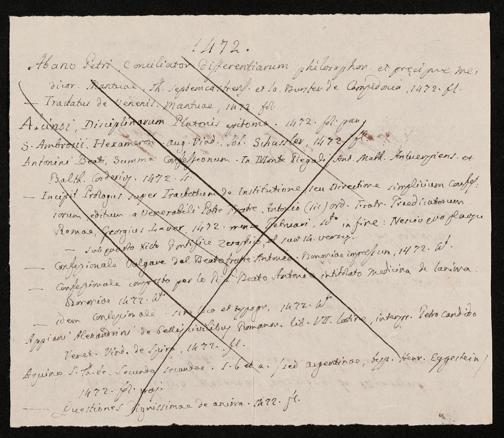 1472.
Abano Petri Conciliator Differentiarum philosophor. et præcipue me-
dicor. Mantuae, Th. Septemcastrens. et Jo. Burster de Campidonia, 1472. fl.
— Tractatus de Venenis. Mantuae, 1472. fl.
Disciplinarum Platonis epitoma. 1472. fl.
S. Ambrosii, Hexameron. aug. Vind. Joh. Schussler, 1472.
Antonini Beati, Summa Confessionum. In Monte Regali, Ant. Math. Antverpiens. et
Balth. Corderius, 1472. 4.
— Incipit Prologus super Tractatum de Institutione seu Directione simplicium Confes-
sorum editum a Venerabili Patre Fratre Antonio (sic) ord. Fratr. Praedicatorum
Romae, Georgius Laver, 1472. Februarii, in fine: Nescio quo
sub quarto Xisto Pontifice
— Confessionale Volgare del Beato frate Antonio. Bononiae impressum, 1472. 4°
— Confessionale composto per lo Beato Antonio intitolato medicina de l'anima.
Bononiae 1472. 4°
— idem Confessionale sine loco et typogr. 1472. 4°
Appiani Alexandrini de bellis civilibus Romanor. lib. VII. latine, interpr. Petro Candido
Venet. Vind. de Spira, 1472. fl.
Aquino S. Th. de, Secunda secundae. S. l. et a. sed argentinae, typ. Henr. Eggestein,
1472. fl. maj.
— Quaestiones de anima. 1472. fl.